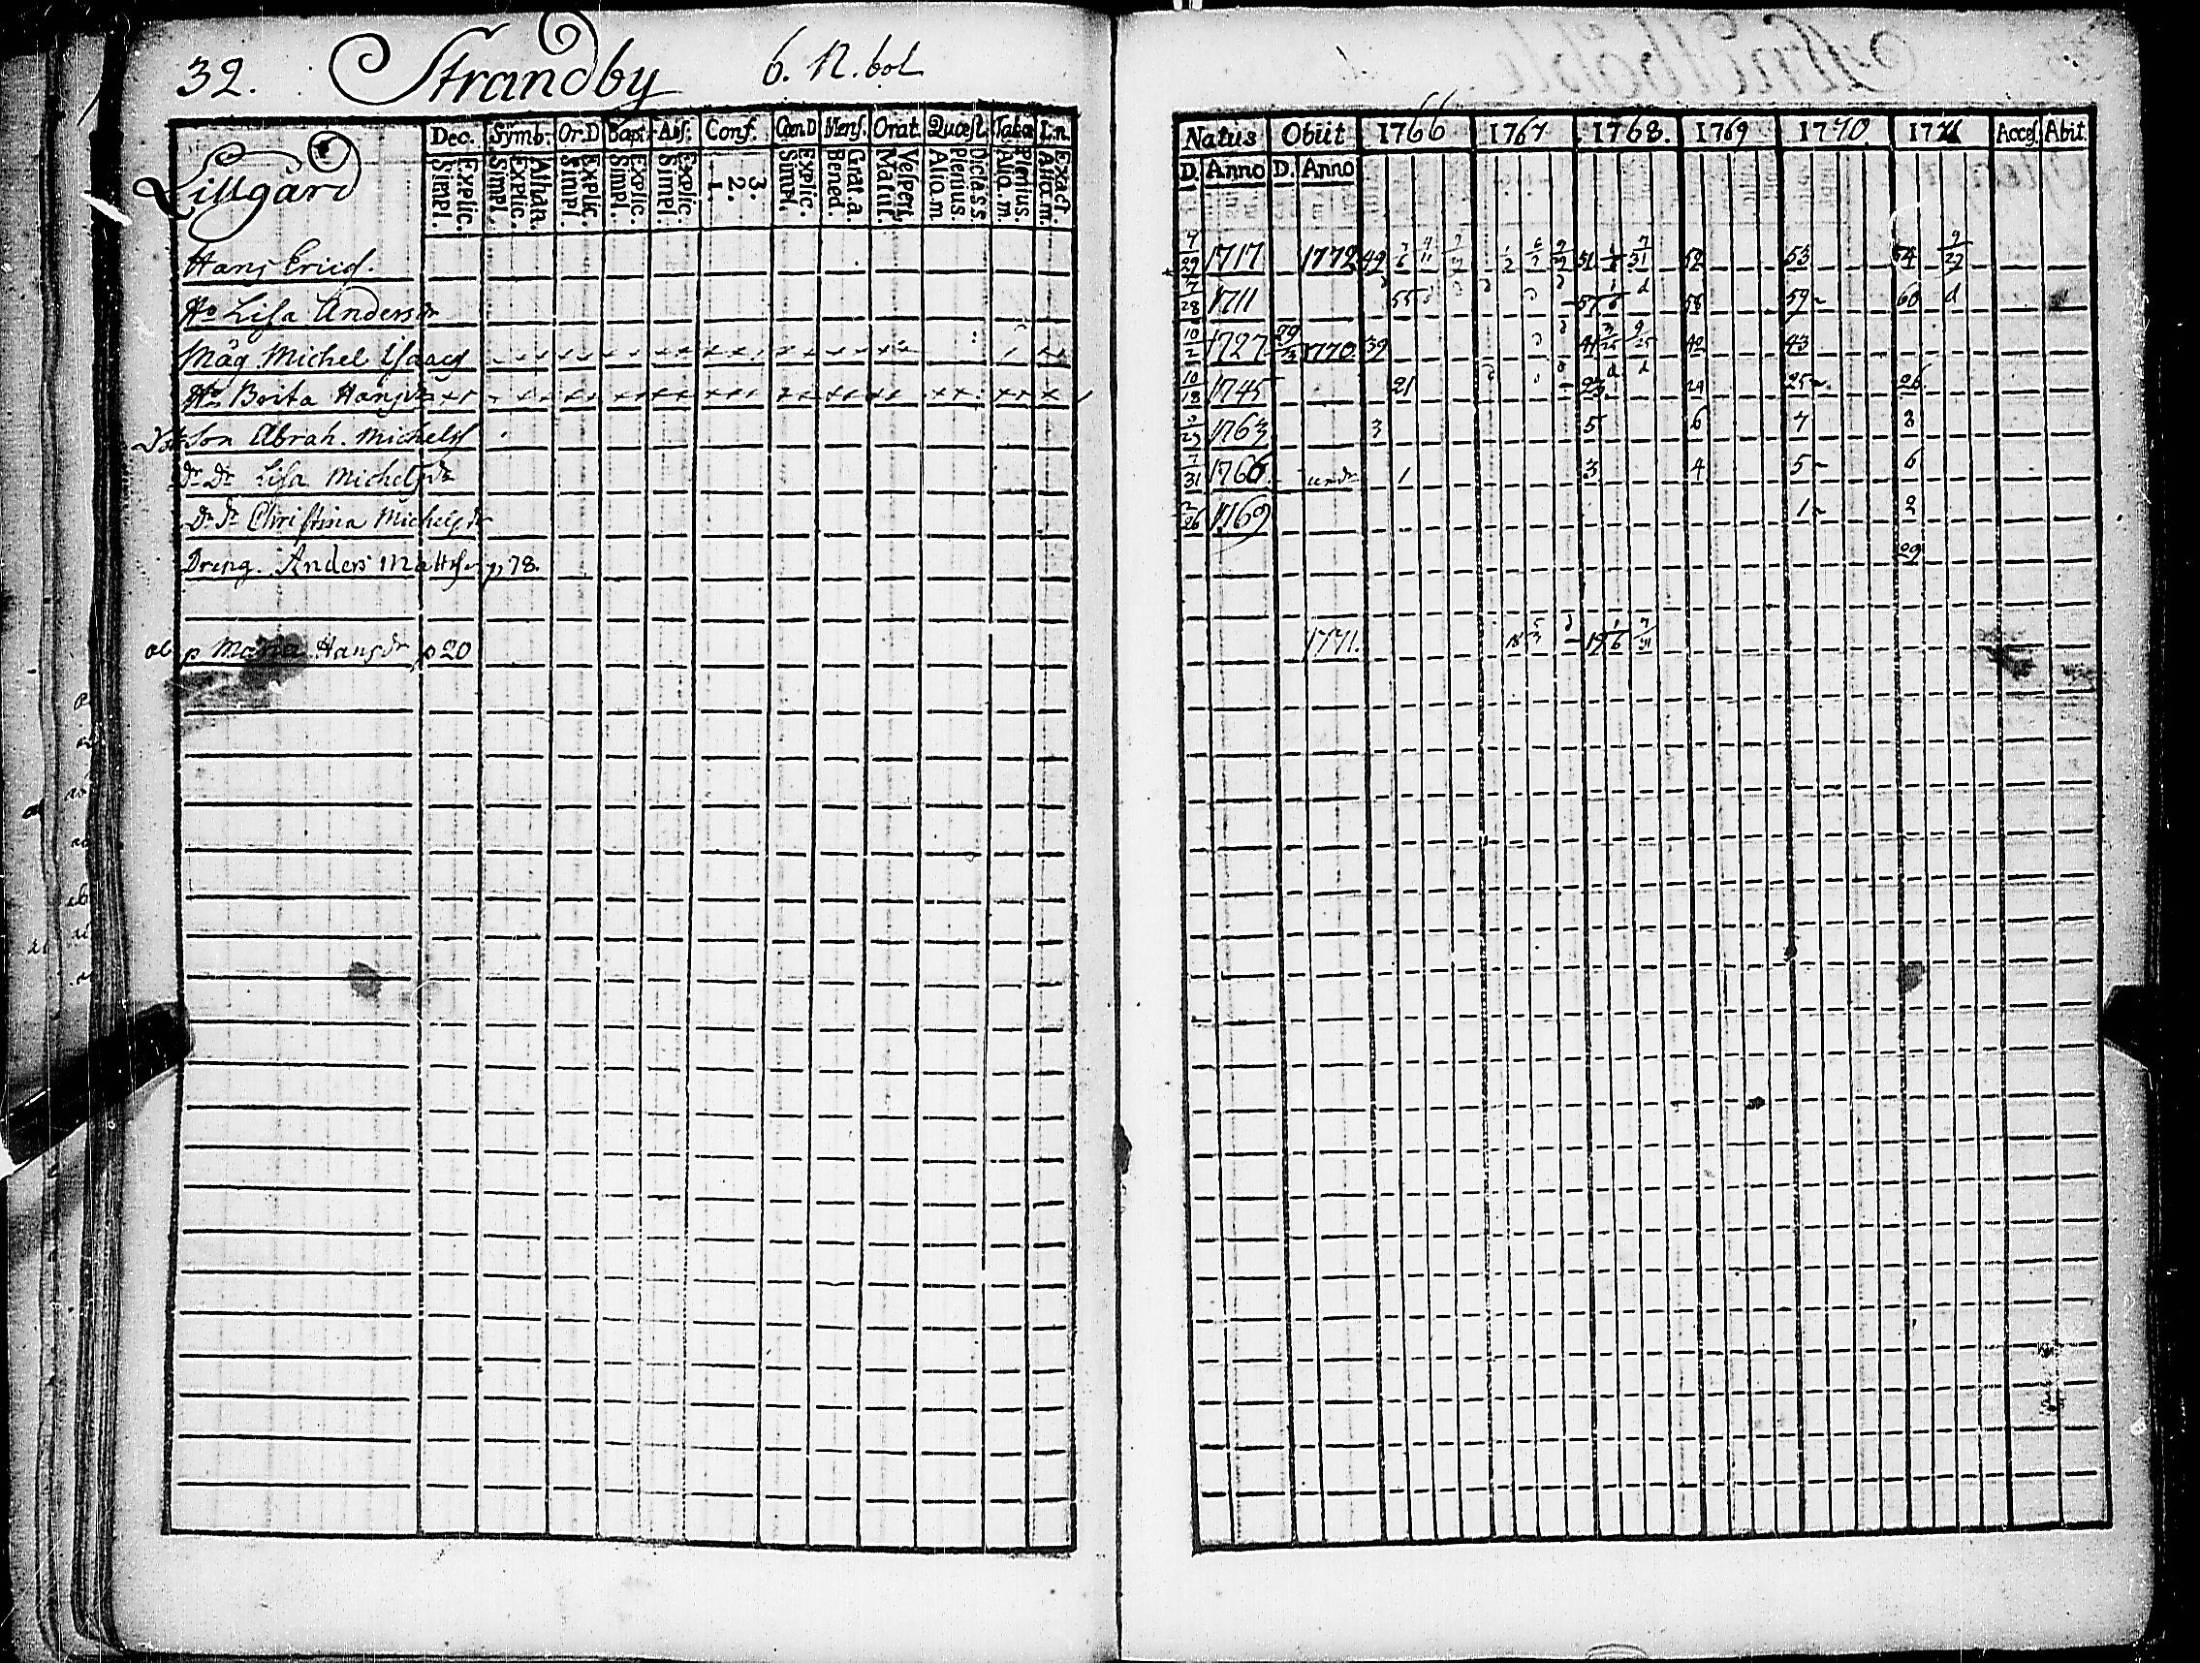 32. Strandby 6. N. bol
Lillgård
Dec. Symb. Or.D Bapt. Conf. Cœn.D Mens. Orat. Quæst.
Simpl. Explic. Simpl. Explic. Athan. Simpl. Explic. Simpl. Explic. Simpl. Explic. 1. 2. 3. Simpl. Explic. Bened. Grat. a. Matut. Vespert. Alio. m. Plenius. Dicta S.S. Alio. m. Plenius. Atta. m. Exact.
Natus Obiit 1766 1767 1768. 1769 1770. 1771 Acces. Abit.
D. Anno D. Anno
Hans Erics. 29 1717 1772 49 51 52 53 54 9/27
Ho Lisa Anders dr 7/28 1711 55 57 58 59 60 d
Måg Michel Isaacs 10/2 1727 1770 39 41 42 43
Brita Hans dr 10/18 1745 21 23 24 25 26
Son Abrah. Michels 1763 3 5 6 7 8
Dr Lisa Michels dr 7/31 1766 1 3 4 5 6
Dr Christina Michels dr 1769 1 2
Dreng. Anders Matts p. 78. 29
ob p Maria Hans dr p 20 1771. 18 19